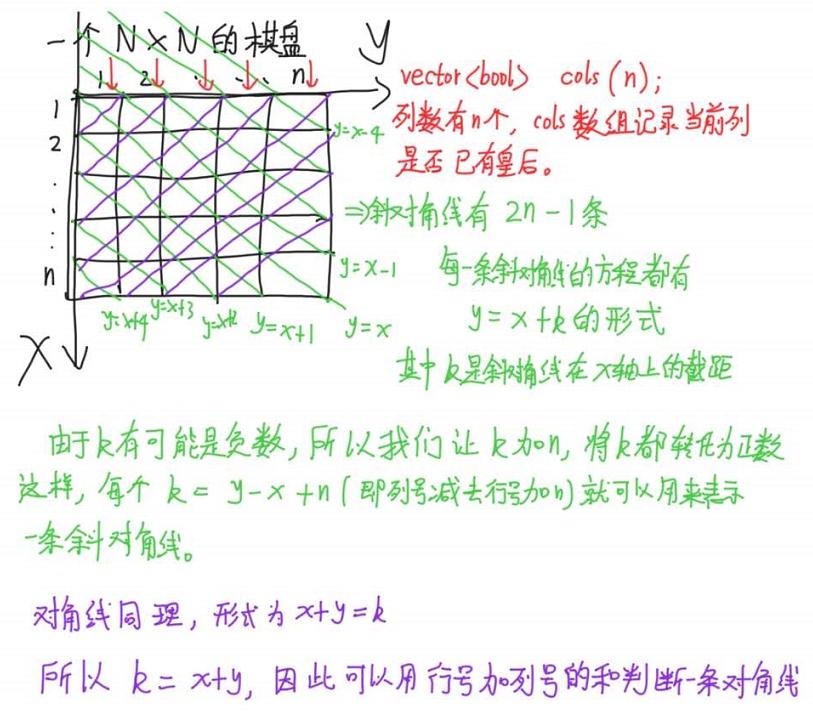 一个 N×N 的棋盘
Y
1 2 . . . n
vector<bool> cols(n);
1
列数有n个, cols数组记录当前列
y=x-4
2
是否已有皇后。
.
.
⇒斜对角线有 2n-1条
:
n
y=x-1
每一条斜对角线的方程都有
y=x+4 y=x+3 y=x+2 y=x+1 y=x
y=x+k的形式
X
其中k是斜对角线在x轴上的截距
由于k有可能是负数,所以我们让k加n,将k都转化为正数
这样,每个 k = y-x+n (即列号减去行号加n)就可以用来表示
一条斜对角线。
对角线同理,形式为x+y=k
所以 k=x+y,因此可以用行号加列号的和判断一条对角线